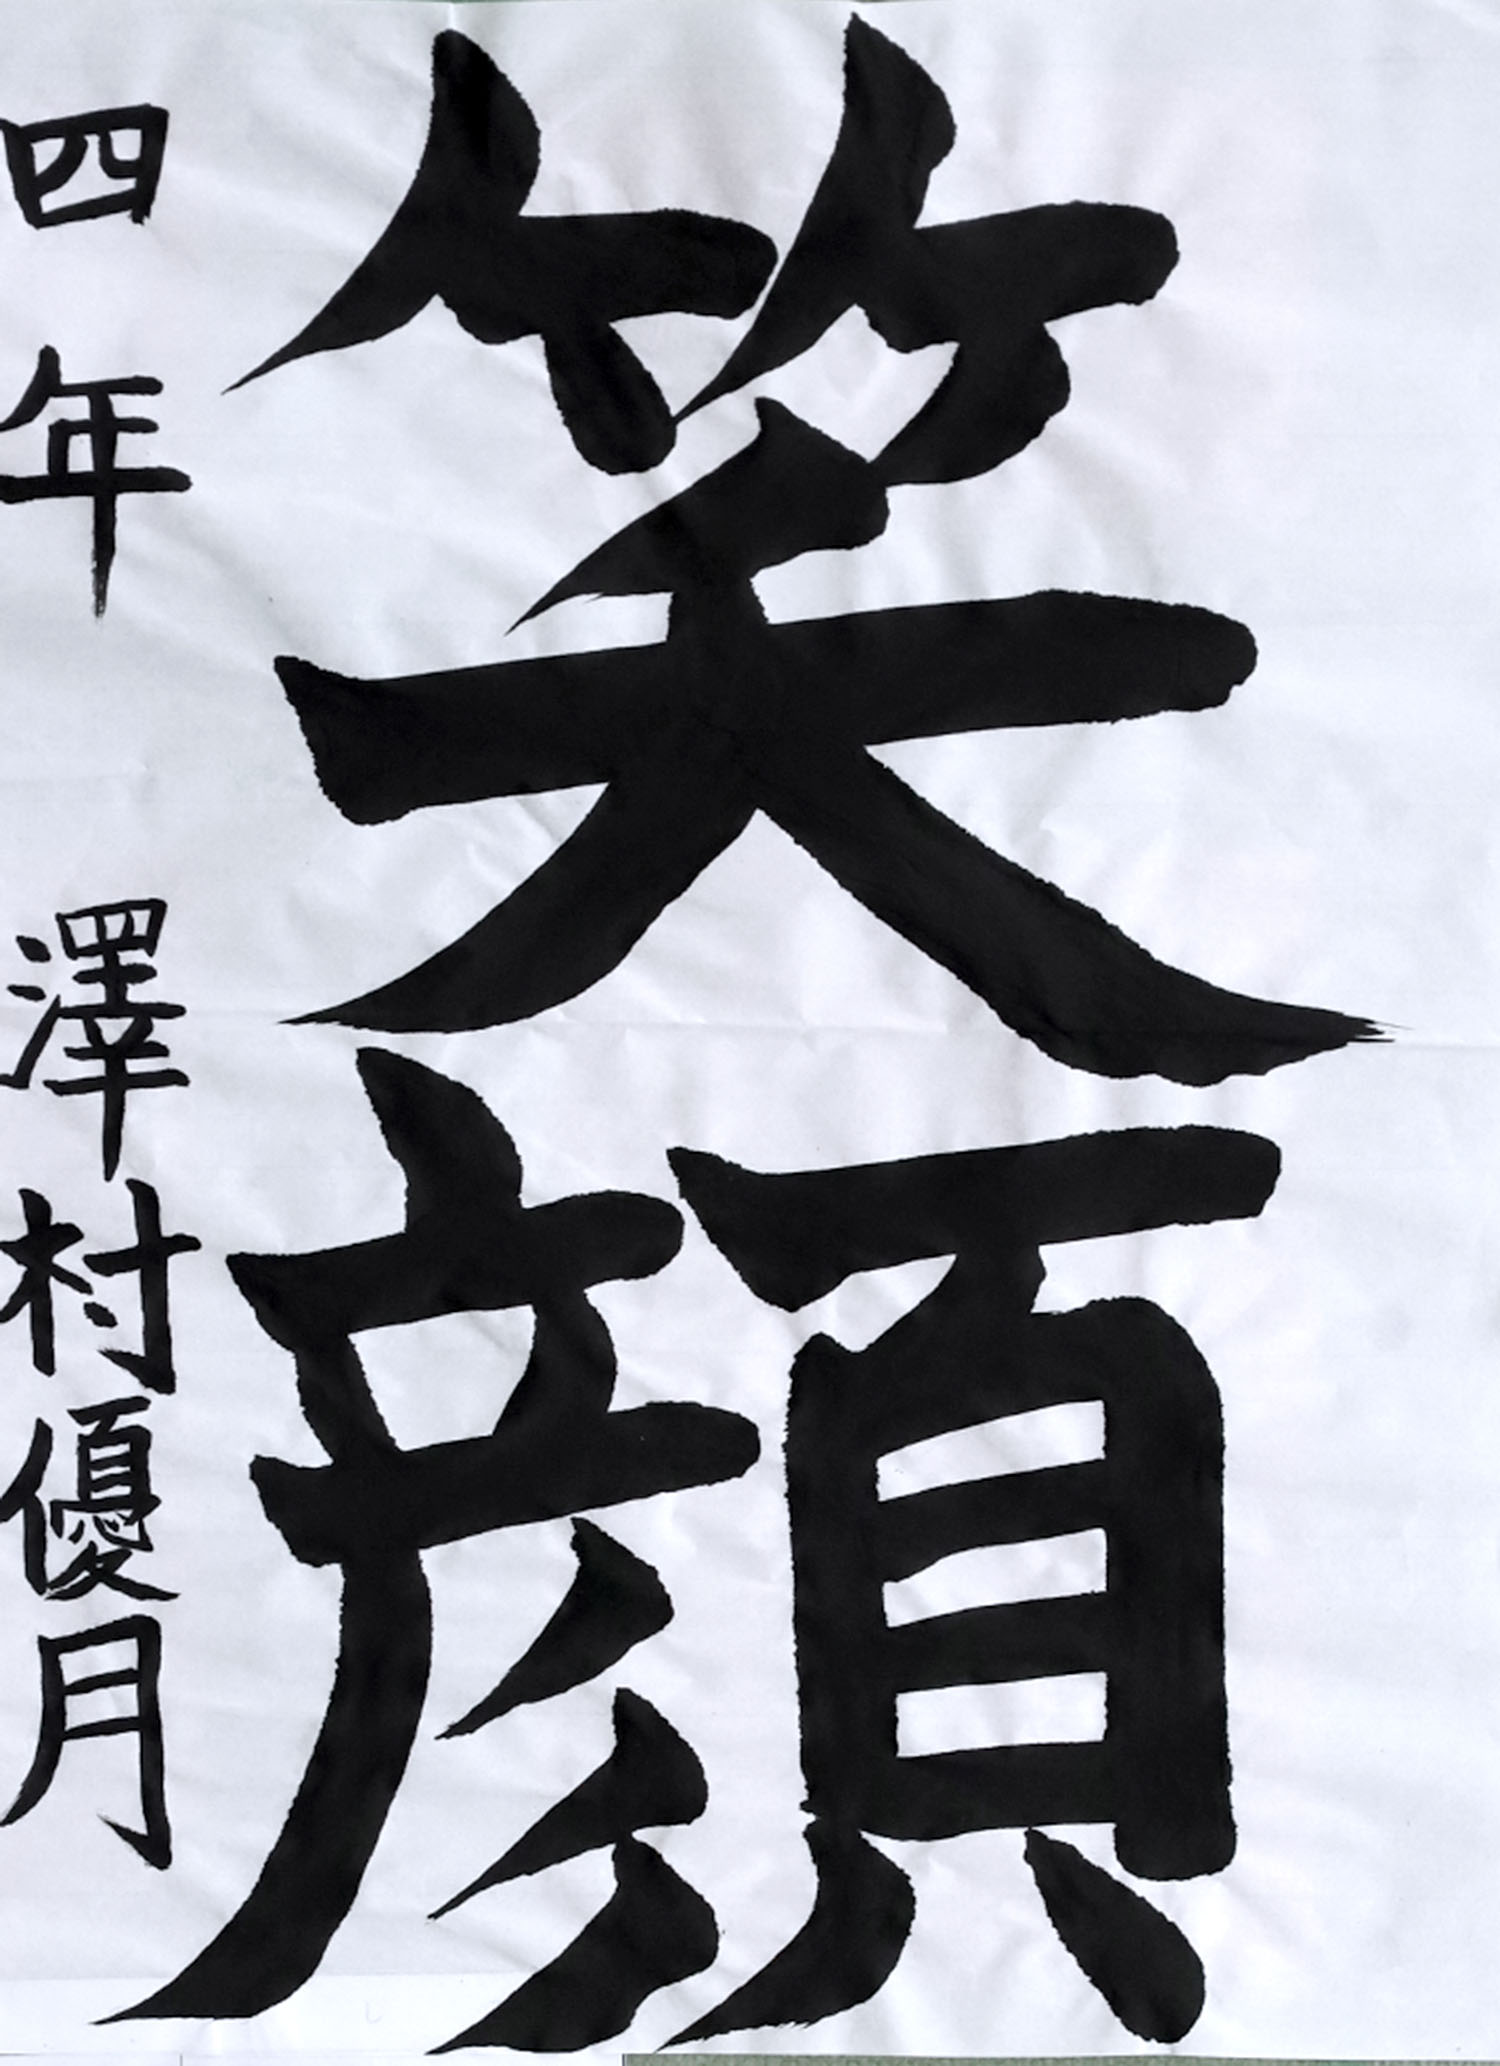 笑顔
四年 澤村優月